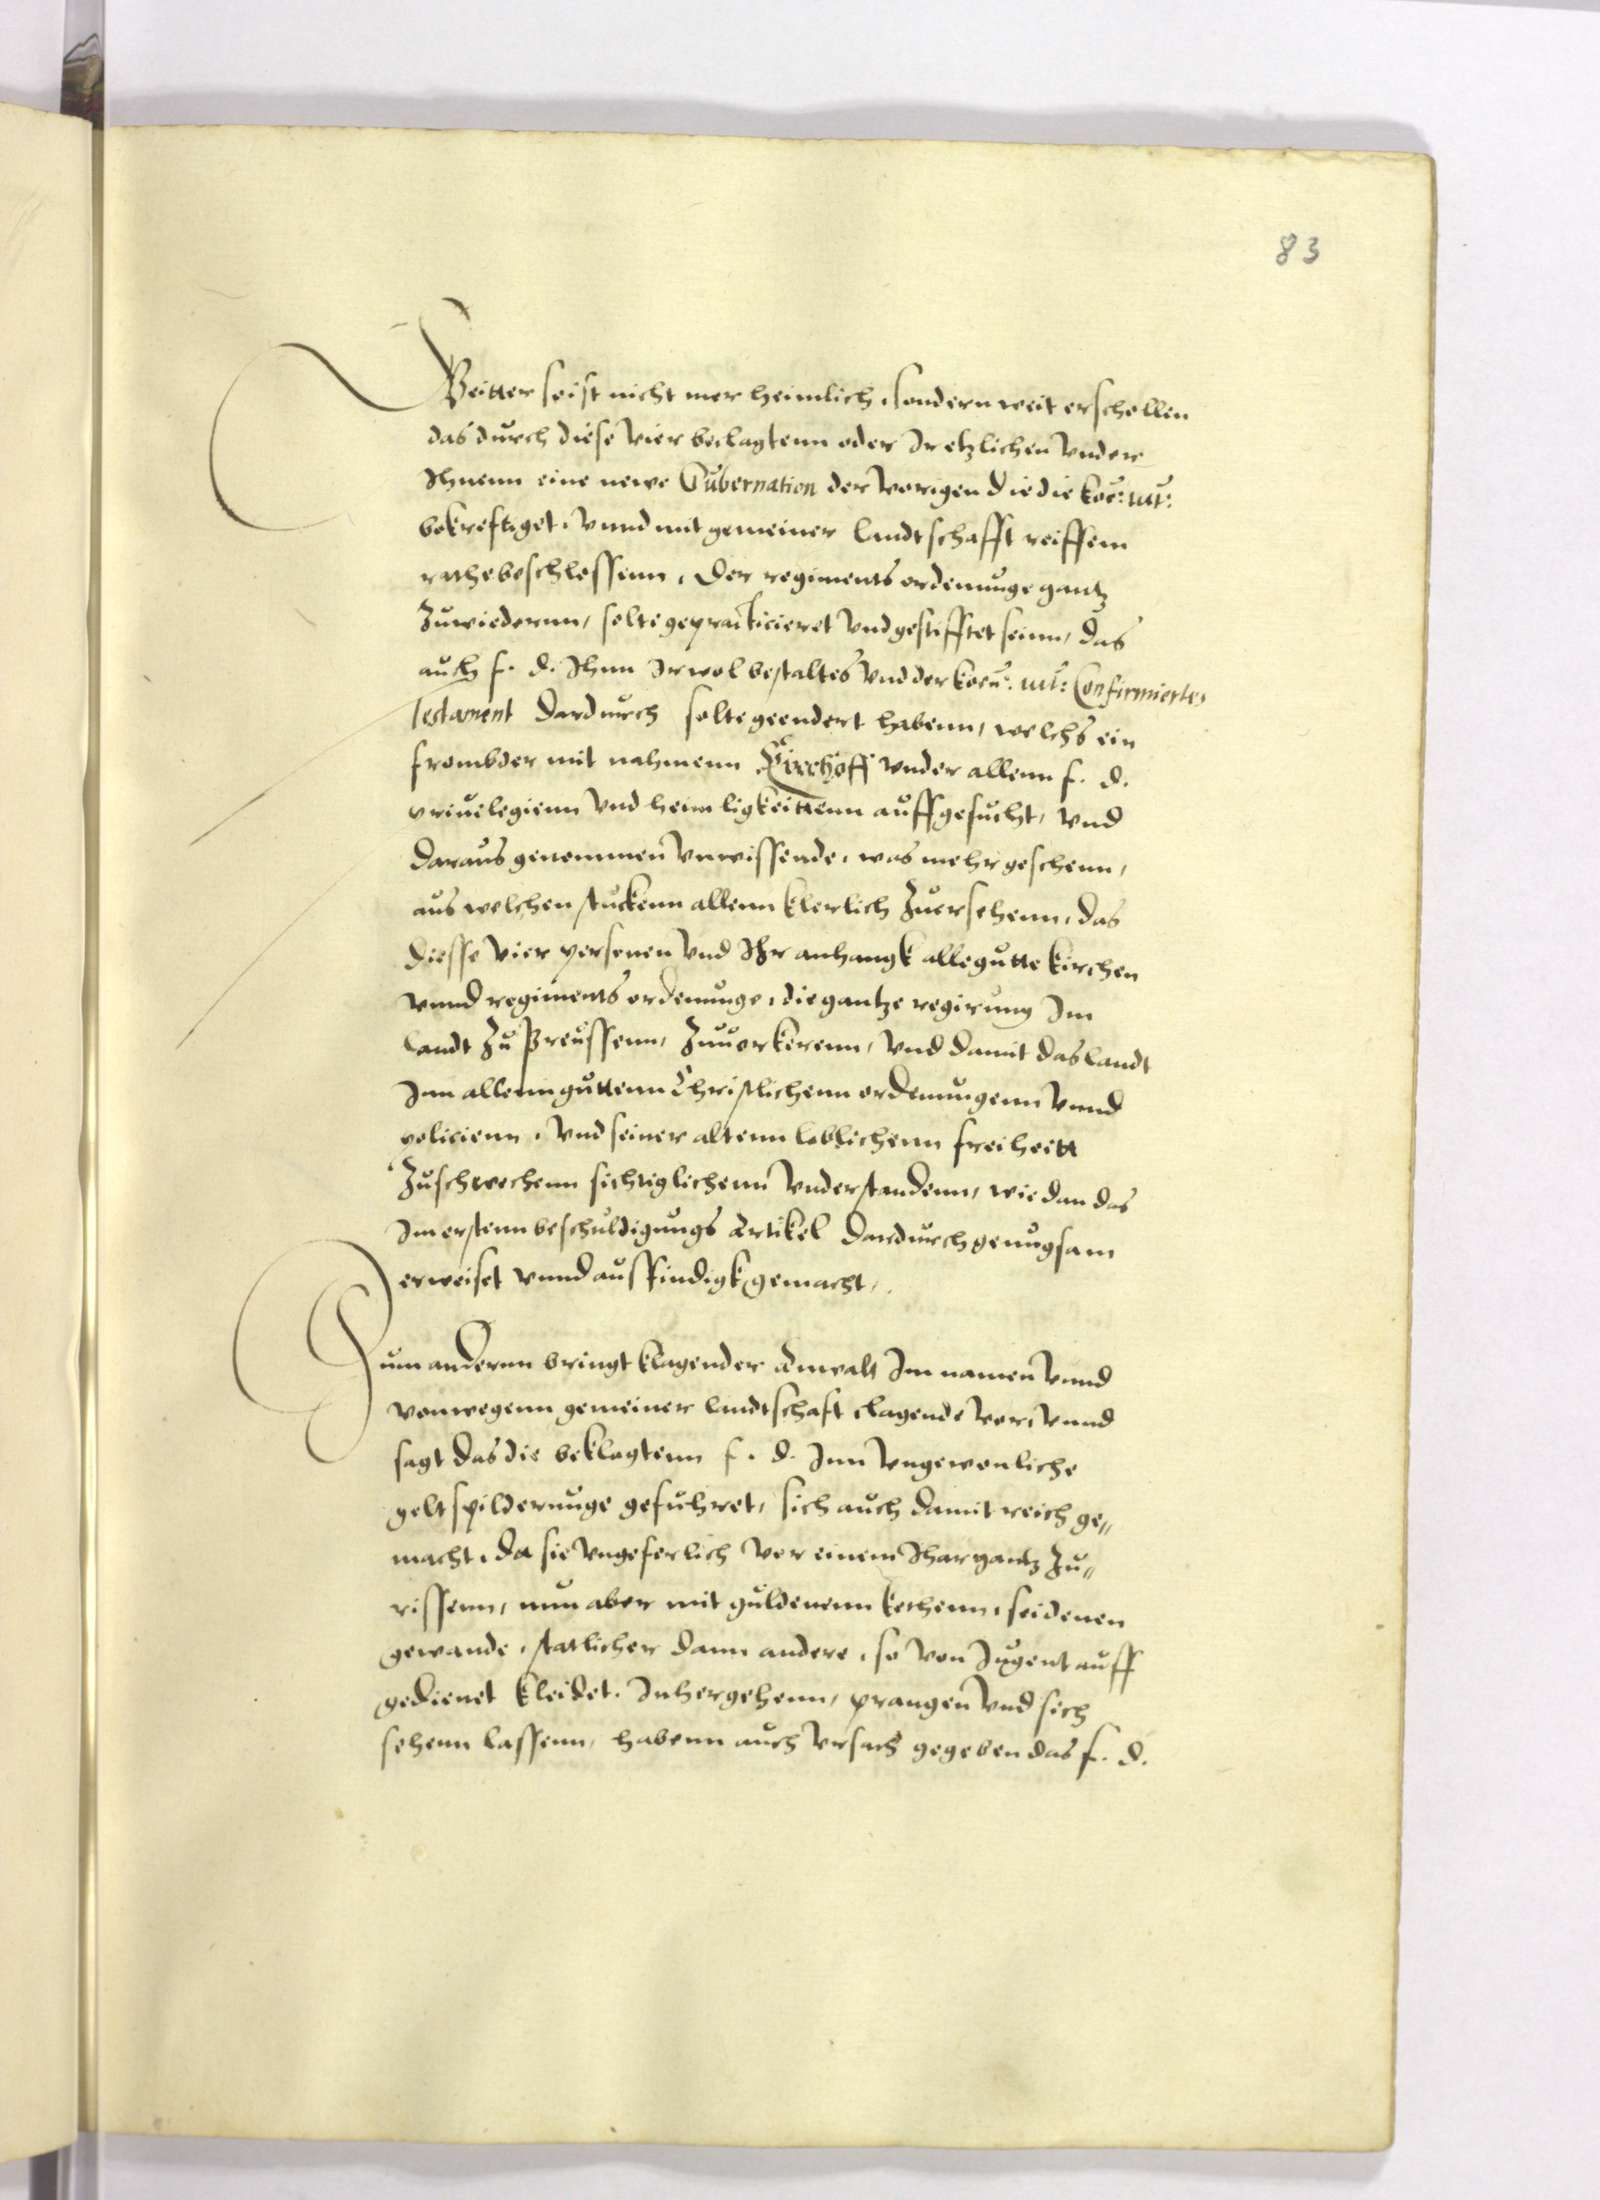 83
Weitter so ist nicht mer heimlich, sondern weit erschollen
das durch diese vier beclagtenn oder Ir etzlichen vnder
Ihnenn eine newe Gubernation der vorigen die die Koe: Mt:
bekreftiget, vnnd mit gemeiner landtschafft reiffem
rathe beschlossenn, der regiments ordenunge gantz
zuwiedernn, solte gepracticieret vnd gestifftet seinn, das
auch f. d. Ihnn Ir wol bestaltes vnd der Koen: Mt: Confirmiertes
Testament dardurch solte geendert habenn, welchs ein
frombder mit nahmenn Kirchoff vnder allenn f. d.
priuelegienn vnd heimligkeittenn auffgesucht, vnd
daraus genommen vnwissende, was mehr geschenn,
aus welchen stuckenn allenn klerlich zuersehenn, das
diesse vier personen vnd Ihr anhangk alle gutte kirchen
vnnd regiments ordenunge, die gantze regirung Im
landt zu Preussenn, zuuorkerenn, vnd damit das landt
Inn allenn guttenn Christlichenn ordenungenn vnnd
policienn, vnd seiner altenn loblichenn freiheitt
zuschwechenn sichtiglichenn vnderstandenn, wie dan das
Im erstenn beschuldigungs Artikel dardurch genugsam
erweiset vnnd ausfindigk gemacht,
Zum andernn bringt klagender Anwalt Im namen vnnd
vonwegenn gemeiner landtschaft clagende vor, vnnd
sagt das die beklagtenn f. d. Inn vngewonliche
gelt spilderunge gefuhret, sich auch damit reich ge„
macht, da sie vngeferlich vor einem Ihar gantz zu„
rissenn, nun aber mit guldenenn kethenn, seidenen
gewande, statlicher dann andere, so von Jugent auff
gedienet kleidet. Inhergehenn, prangen vnd sich
sehenn lassenn, habenn auch vrsach gegeben das f. d.